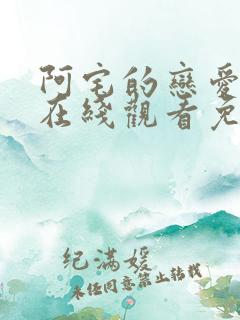 阿宅的戀愛
在綫觀看免
纪满媛
未经同意禁止转载